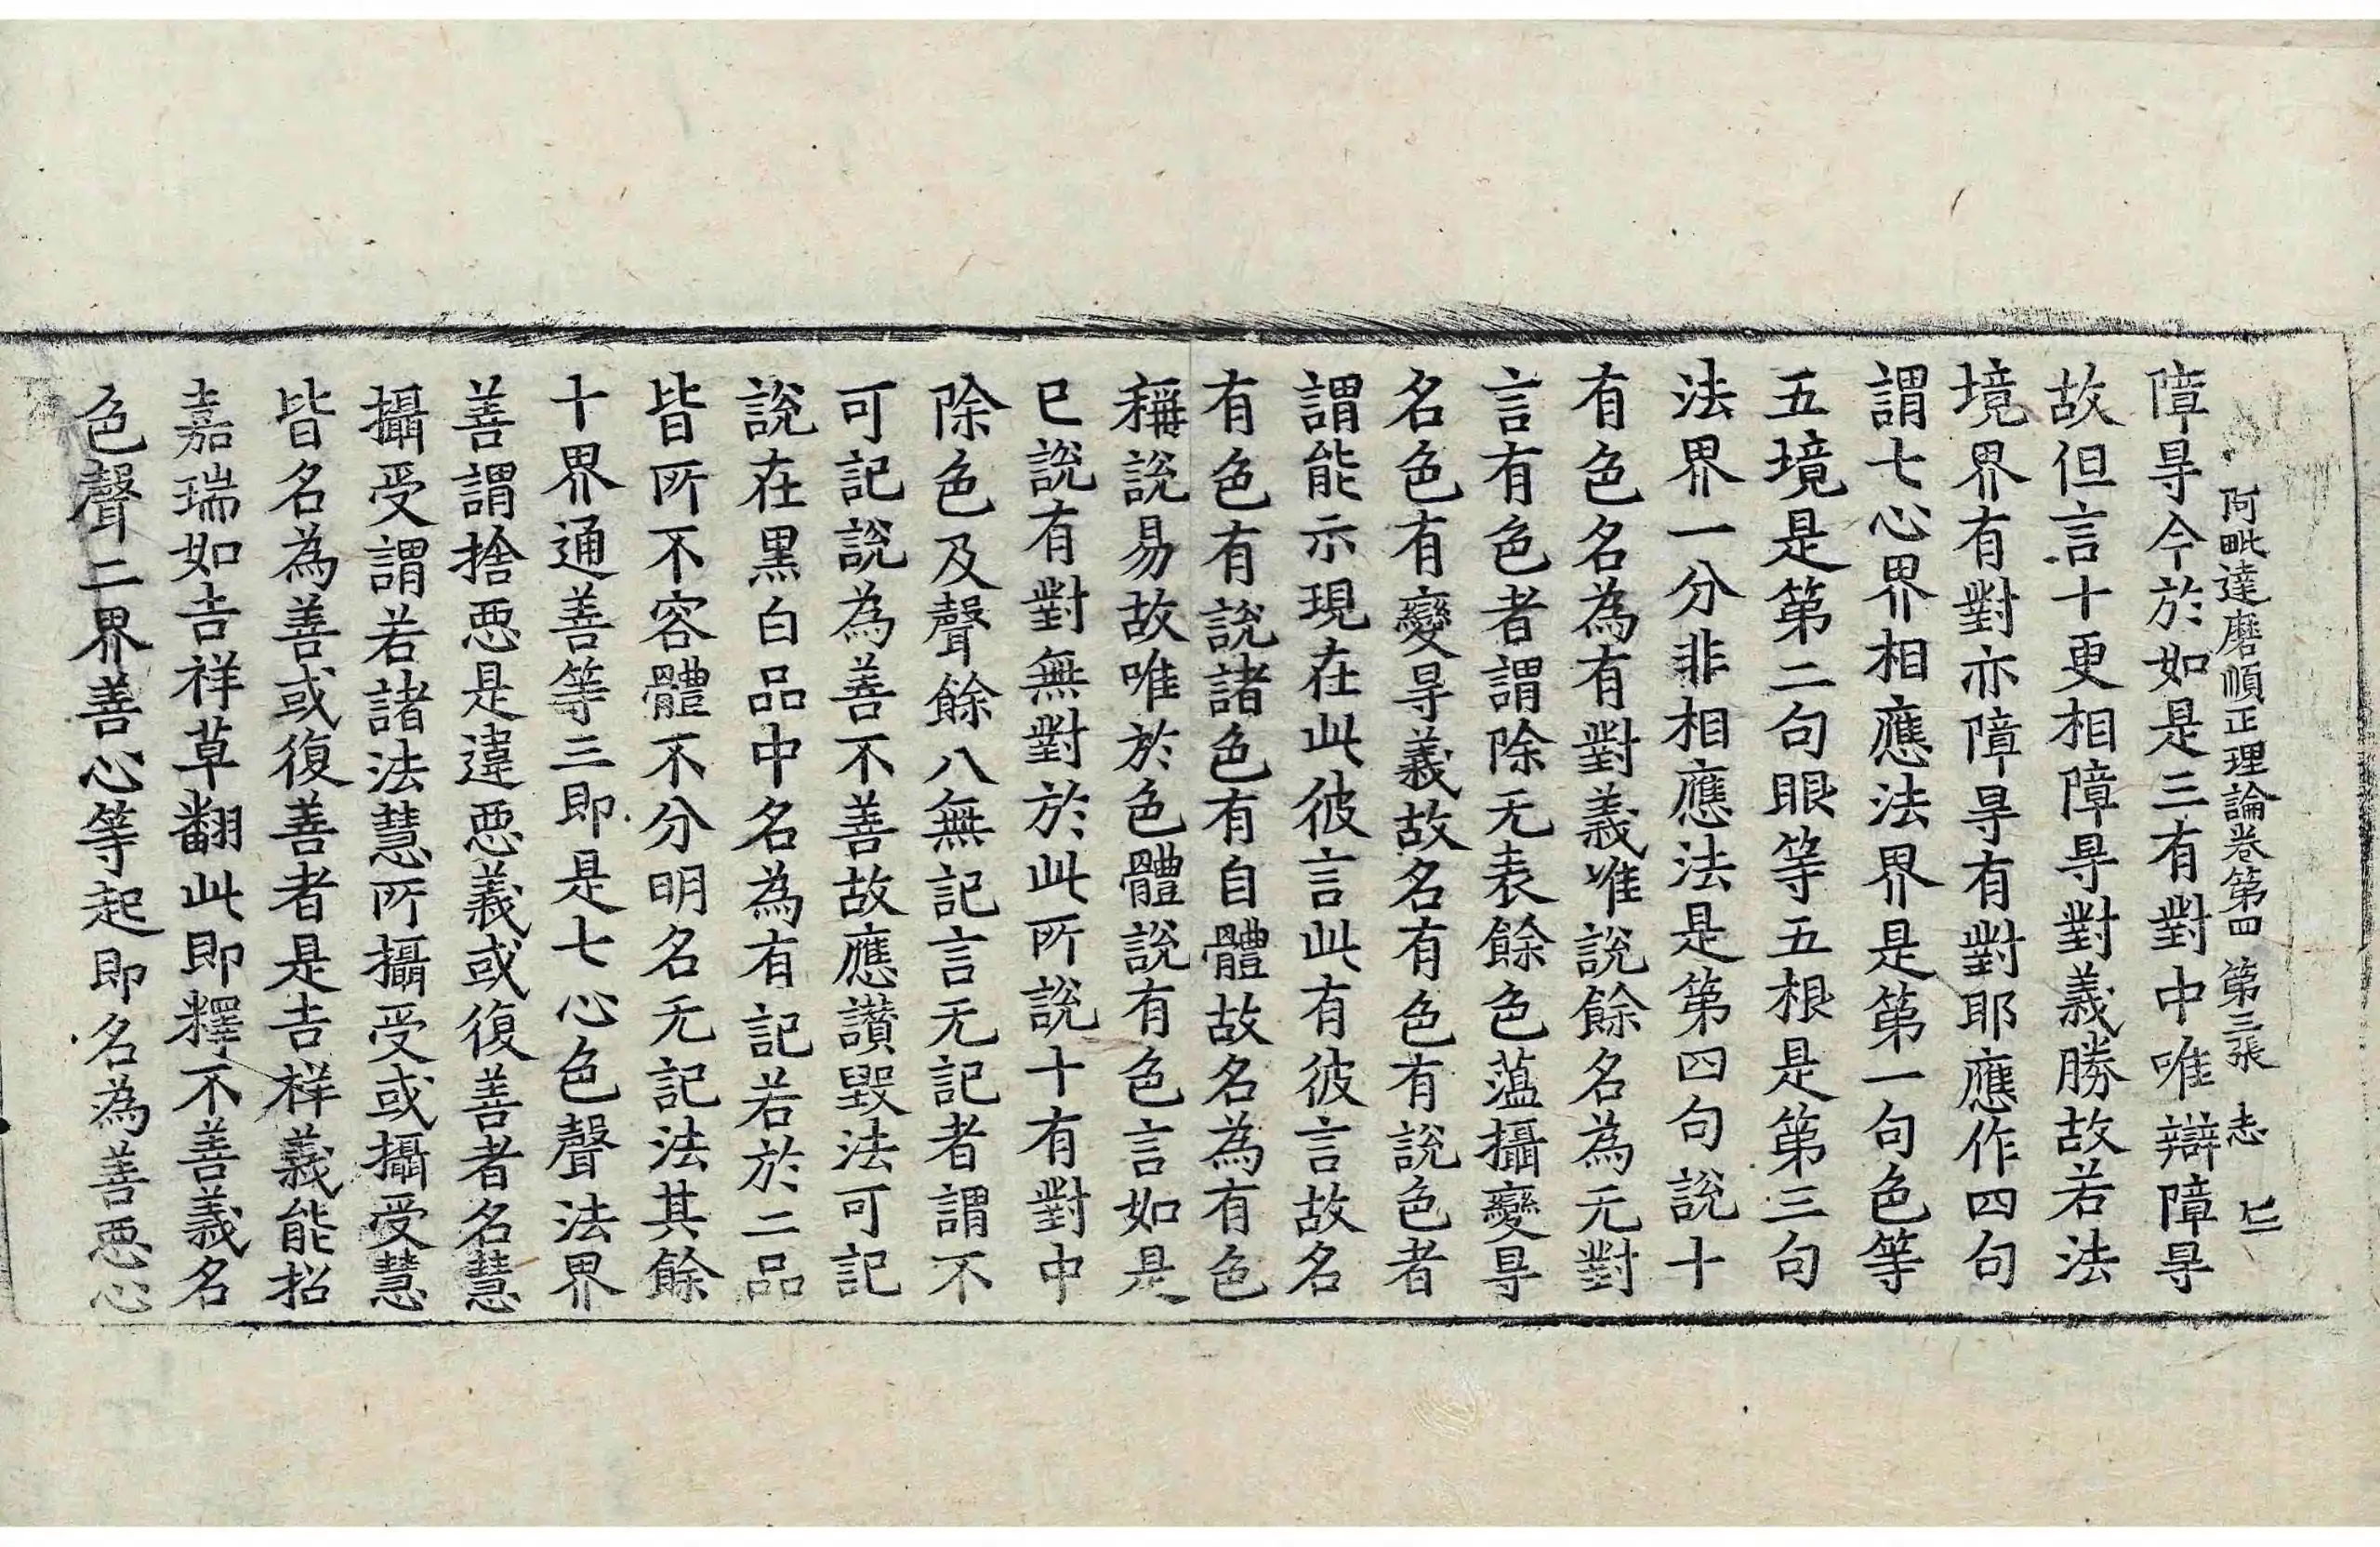 阿毗達磨順正理論卷第四 第三張 志
障㝵今於如是三有對中唯辯障㝵
故但言十更相障㝵對義勝故若法
境界有對亦障㝵有對耶應作四句
謂七心界相應法界是第一句色等
五境是第二句眼等五根是第三句
法界一分非相應法是第四句說十
有色名為有對義唯說餘名為无對
言有色者謂除无表餘色蕰攝變㝵
名色有變㝵義故名有色有說色者
謂能示現在此彼言此有彼言故名
有色有說諸色有自體故名為有色
稱說易故唯於色體說有色言如是
已說有對無對於此所說十有對中
除色及聲餘八無記言无記者謂不
可記說為善不善故應讃毀法可記
說在黑白品中名為有記若於二品
皆所不容體不分明名无記法其餘
十界通善等三即是七心色聲法界
善謂捨惡是違惡義或復善者名慧
攝受謂若諸法慧所攝受或攝受慧
皆名為善或復善者是吉祥義能招
嘉瑞如吉祥草翻此即釋不善義名
色聲二界善心等起即名為善惡心